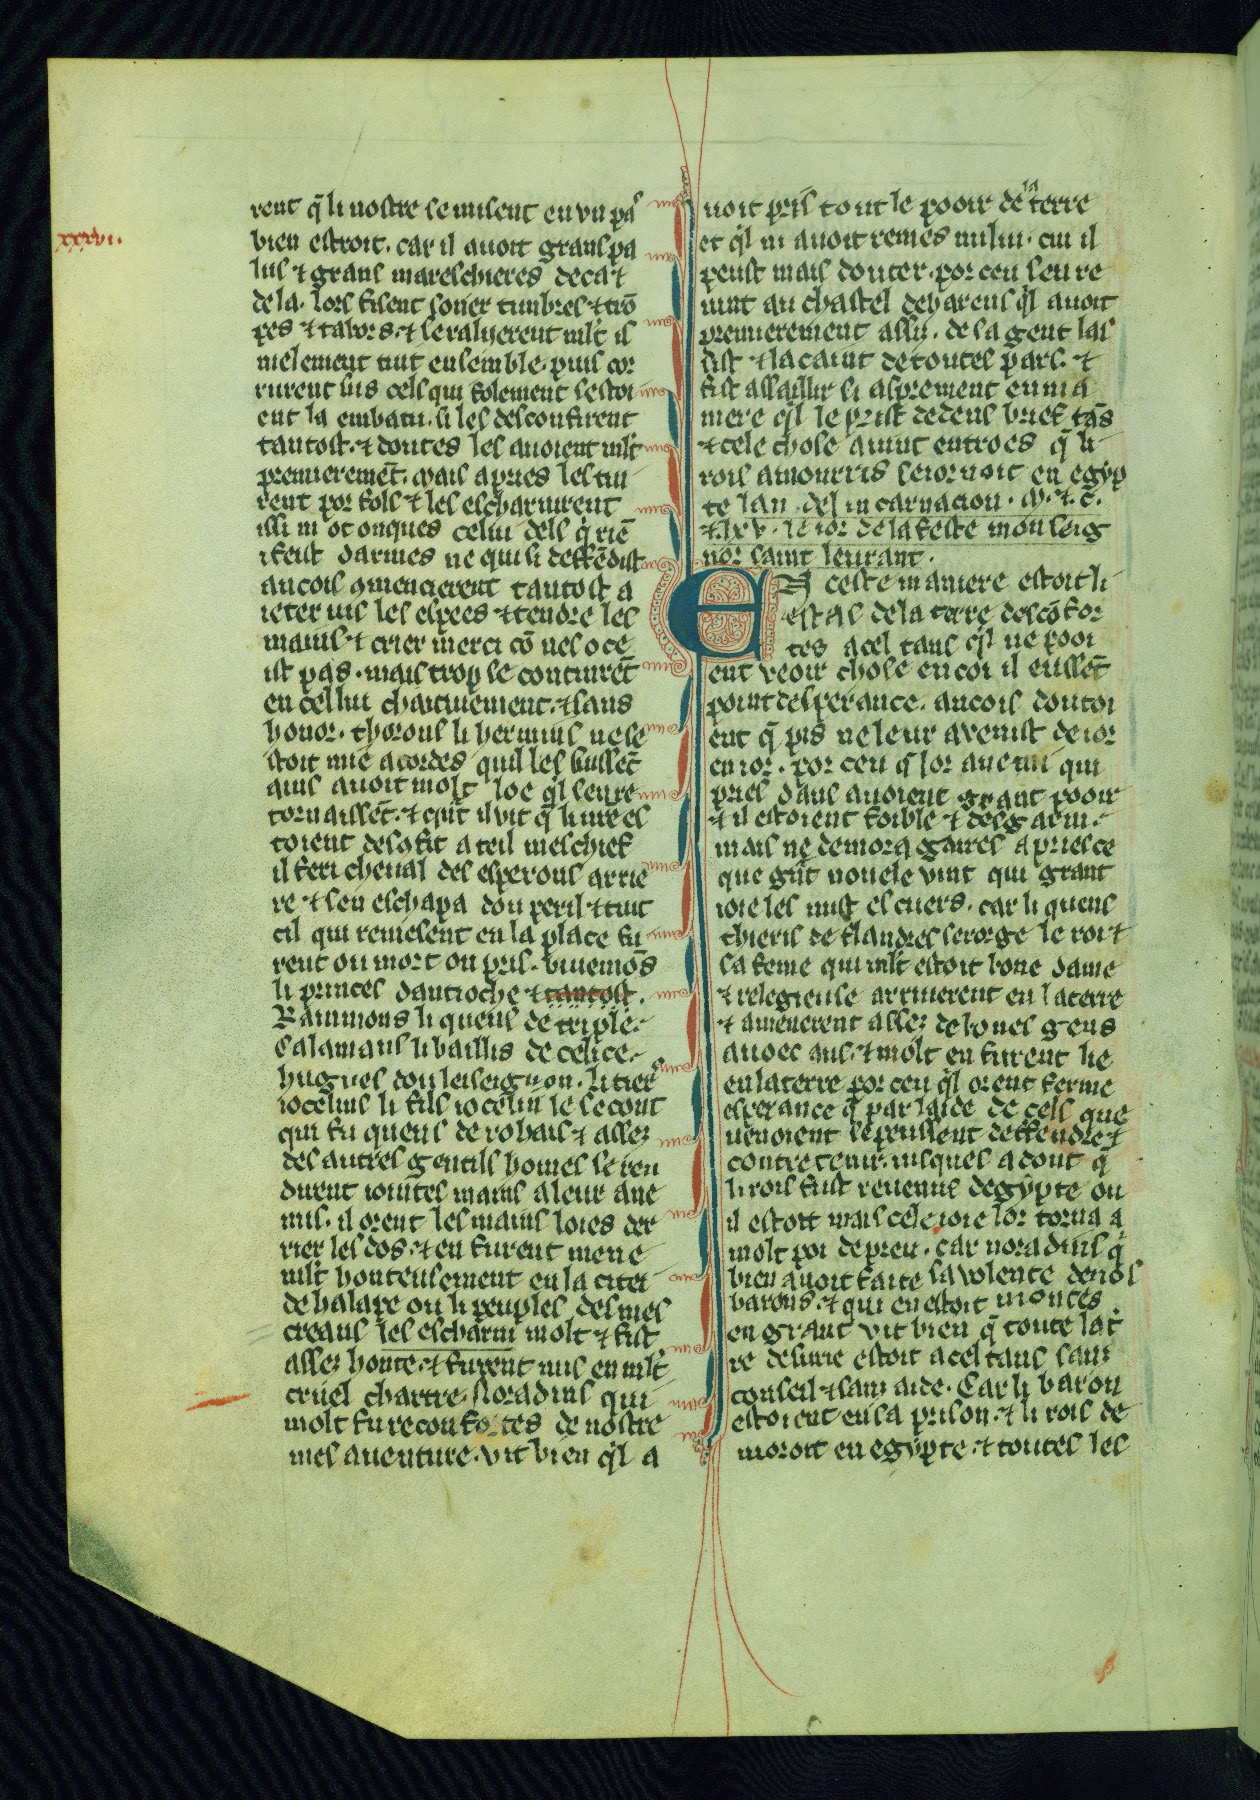 xxxvi.
rent q̃ li nostre se misent en vn pas
bien estroit. car il auoit grans pa
lus ⁊ grans mareschieres deca ⁊
dela. lors fisent soner timbres ⁊ trõ
pes ⁊ tabors. ⁊ se ralyerent mlt il
melement tuit ensemble. puis cor
rurent sus cels qui folement sestoi
ent la embatu. si les desconfirent
tantost. ⁊ doutes les auoient mlt
premieremẽt. mais apries les tin
rent por fols ⁊ les escharnirent
issi ni ot onques celui dels q̃ riẽ
i feist darmes ne qui si deffẽdist
ancois 9mencierent tantost a
ieter ius les espees ⁊ tendre les
mains ⁊ crier merci cõ nes oce
ist pas. mais trop se contintrẽt
en cel lui chaitiuement. ⁊ sans
honor. thorous li hermins ne se
stoit mie acordes quil les suissẽt
ains auoit molt loe q̃l sen re
tornaissẽt. ⁊ q̃nt il vit q̃ li nr̃e es
toient descõfit a teil meschief
il feri cheual des esperons arrie
re ⁊ sen eschapa dou peril ⁊ tuit
cil qui remesent en la place fu
rent ou mort ou pris. buiemõs
li princes dantioche ⁊ tantost.
Raimmons li queus de triple.
Calamans li baillis de celice.
hugues dou leiseignon. li tiers
iocelins li fils iocelin le secont
qui fu queus de rohais ⁊ asses
des autres gentils homes se ren
dirent iointes mains a leur ane
mis. il orent les mains loies der
rier les dos. ⁊ en furent mene
mlt honteusement en la citei
de halape ou li peuples des mes
creans les escharni molt ⁊ fist
asses honte. ⁊ furent mis en mlt
cruel chartre. Noradins qui
molt fu reconfortes de nostre
mesauenture. vit bien q̃l a
uoit pris tout le pooir de la terre
et q̃l ni auoit remes nului. cui il
peust mais douter. por ceu sen re
uint au chastel de harens q̃l auoit
premierement assis. de sa gent las
sist ⁊ lacaint de toutes pars. ⁊
fist assaillir si asprement en ma
niere q̃l le prist dedens brief tãs
⁊ cele chose auint entroes q̃ li
rois amourris seiornoit en egyp
te lan del incarnacion. M. ⁊. C.
⁊. lxv. le ior de la feste monseig
nor saint leurant.
EN ceste maniere estoit li
estas de la terre descõfor
tes a cel tans q̃l ne pooi
ent veoir chose en coi il eussẽt
point desperance. ancois doutoi
ent q̃ pis ne leur avenist de ior
en ior. por ceu q̃ lor anemi qui
pries daus auoient grant pooir
⁊ il estoient foible ⁊ desgarni.
mais ne demora gaires apries ce
que gñt nouele vint qui grant
ioie les mist es cuers. car li quens
thieris de flandres serorge le roi ⁊
sa feme qui mlt estoit bone dame
⁊ relegieuse arriuerent en la terre
⁊ amenerent asses de bones gens
auoec aus. ⁊ molt en furent lie
en la terre por ceu q̃l orent ferme
esperance q̃ par laide de cels que
uenoient se peussent deffendre ⁊
contretenir. iusques adont q̃
li rois fust reuenus degypte ou
il estoit mais cele ioie lor torna a
molt poi de preu. car noradins q̃
bien auoit faite sa volente de nos
barons. ⁊ qui en estoit montes
en grant vit bien q̃ toute la t̃
re de surie estoit a cel tans sans
conseil ⁊ sans aide. Car li baron
estoient en sa prison. ⁊ li rois de
moroit en egypte. ⁊ toutes les